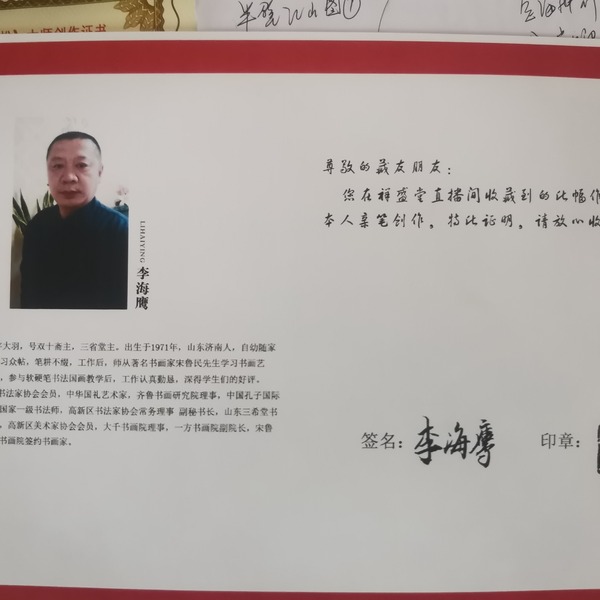 大师创作证书
尊敬的藏友朋友：
您在祥盛堂直播间收藏到的此幅作
本人亲笔创作。特此证明。请放心收
LIHAIYING
李海鹰
字大羽，号双十斋主，三省堂主。出生于1971年，山东济南人，自幼随家
习众帖，笔耕不缀，工作后，师从著名书画家宋鲁民先生学习书画艺
，参与软硬笔书法国画教学后，工作认真勤恳，深得学生们的好评。
书法家协会会员，中华国礼艺术家，齐鲁书画研究院理事，中国孔子国际
国家一级书法师，高新区书法家协会常务理事 副秘书长，山东三希堂书
，高新区美术家协会会员，大千书画院理事，一方书画院副院长，宋鲁
书画院签约书画家。
签名：李海鹰 印章：